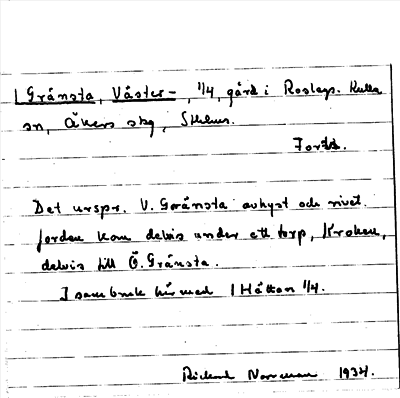 1 Gränsta, Väster-, 1/4, gård i Roslags-Kulla
sn, Åkers skg, Sthlms.
Fordd.
Det urspr. V. Gränsta avhyst och rivet.
Jorden kom delvis under ett torp, Kroken,
delvis till Ö. Gränsta.
I sambruk härmed 1 Håttan 1/4.
Rickard Norrman 1934.